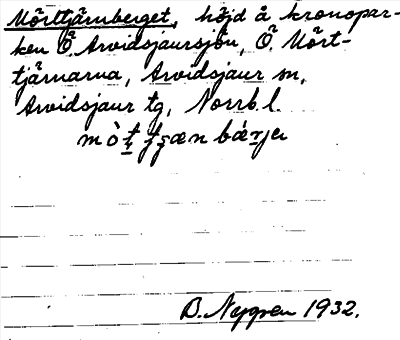 Mörttjärnberget, höjd å kronopar-
ken Ö. Arvidsjaursjön, Ö. Mört-
tjärnarna, Arvidsjaur sn,
Arvidsjaur tg, Norrb. l.
B. Nygren 1932.